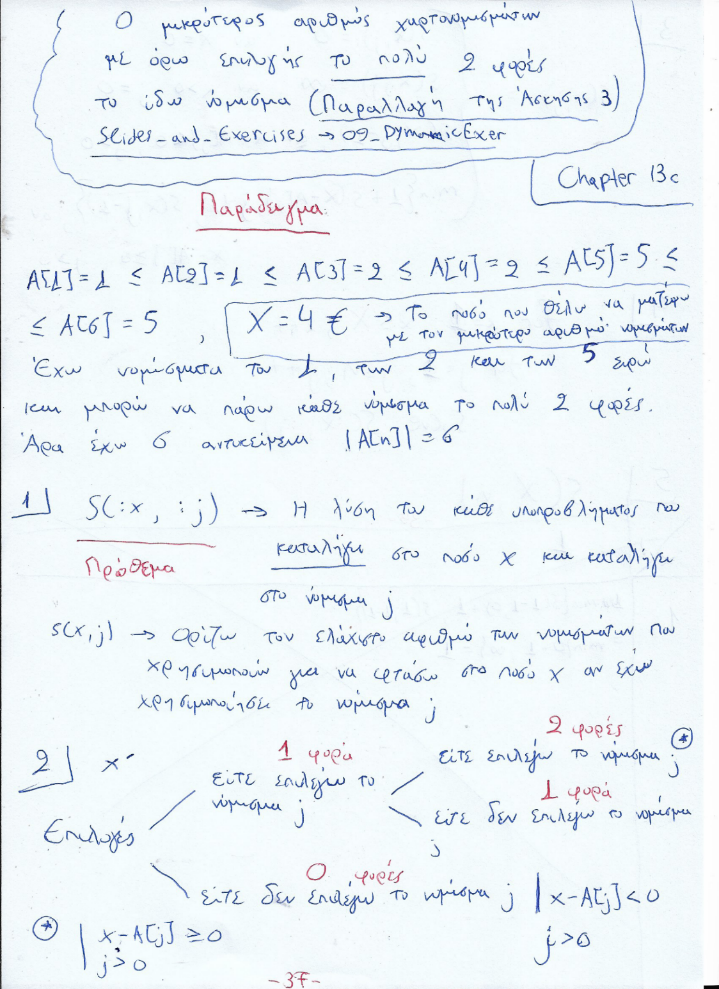 Ο μικρότερος αριθμός χαρτονομισμάτων
με όρο επιλογής το πολύ 2 φορές
το ίδιο νόμισμα (Παραλλαγή της Άσκησης 3)
Slides_and_Exercises → 09_DynamicExer
Chapter 13c
Παράδειγμα:
A[1]=1 ≤ A[2]=1 ≤ A[3]=2 ≤ A[4]=2 ≤ A[5]=5 ≤
≤ A[6]=5 , X=4 € → Το ποσό που θέλω να μαζέψω
με τον μικρότερο αριθμό νομισμάτων
Έχω νομίσματα του 1, των 2 και των 5 ευρώ
και μπορώ να πάρω κάθε νόμισμα το πολύ 2 φορές.
Άρα έχω 6 αντικείμενα |A[n]|=6
1] S(:x, :j) → Η λύση του κάθε υποπροβλήματος που
Πρόθεμα καταλήγει στο ποσό x και καταλήγει
στο νόμισμα j
s(x,j) → Ορίζω τον ελάχιστο αριθμό των νομισμάτων που
χρησιμοποιούν για να φτάσω στο ποσό x αν έχω
χρησιμοποιήσει το νόμισμα j
2 φορές
2] x 1 φορά είτε επιλέγω το νόμισμα j (*)
είτε επιλέγω το
νόμισμα j 1 φορά
Επιλογές είτε δεν επιλέγω το νόμισμα
j
0 φορές
είτε δεν επιλέγω το νόμισμα j | x-A[j]<0
j>0
(*) | x-A[j] ≥0
j>0
-37-